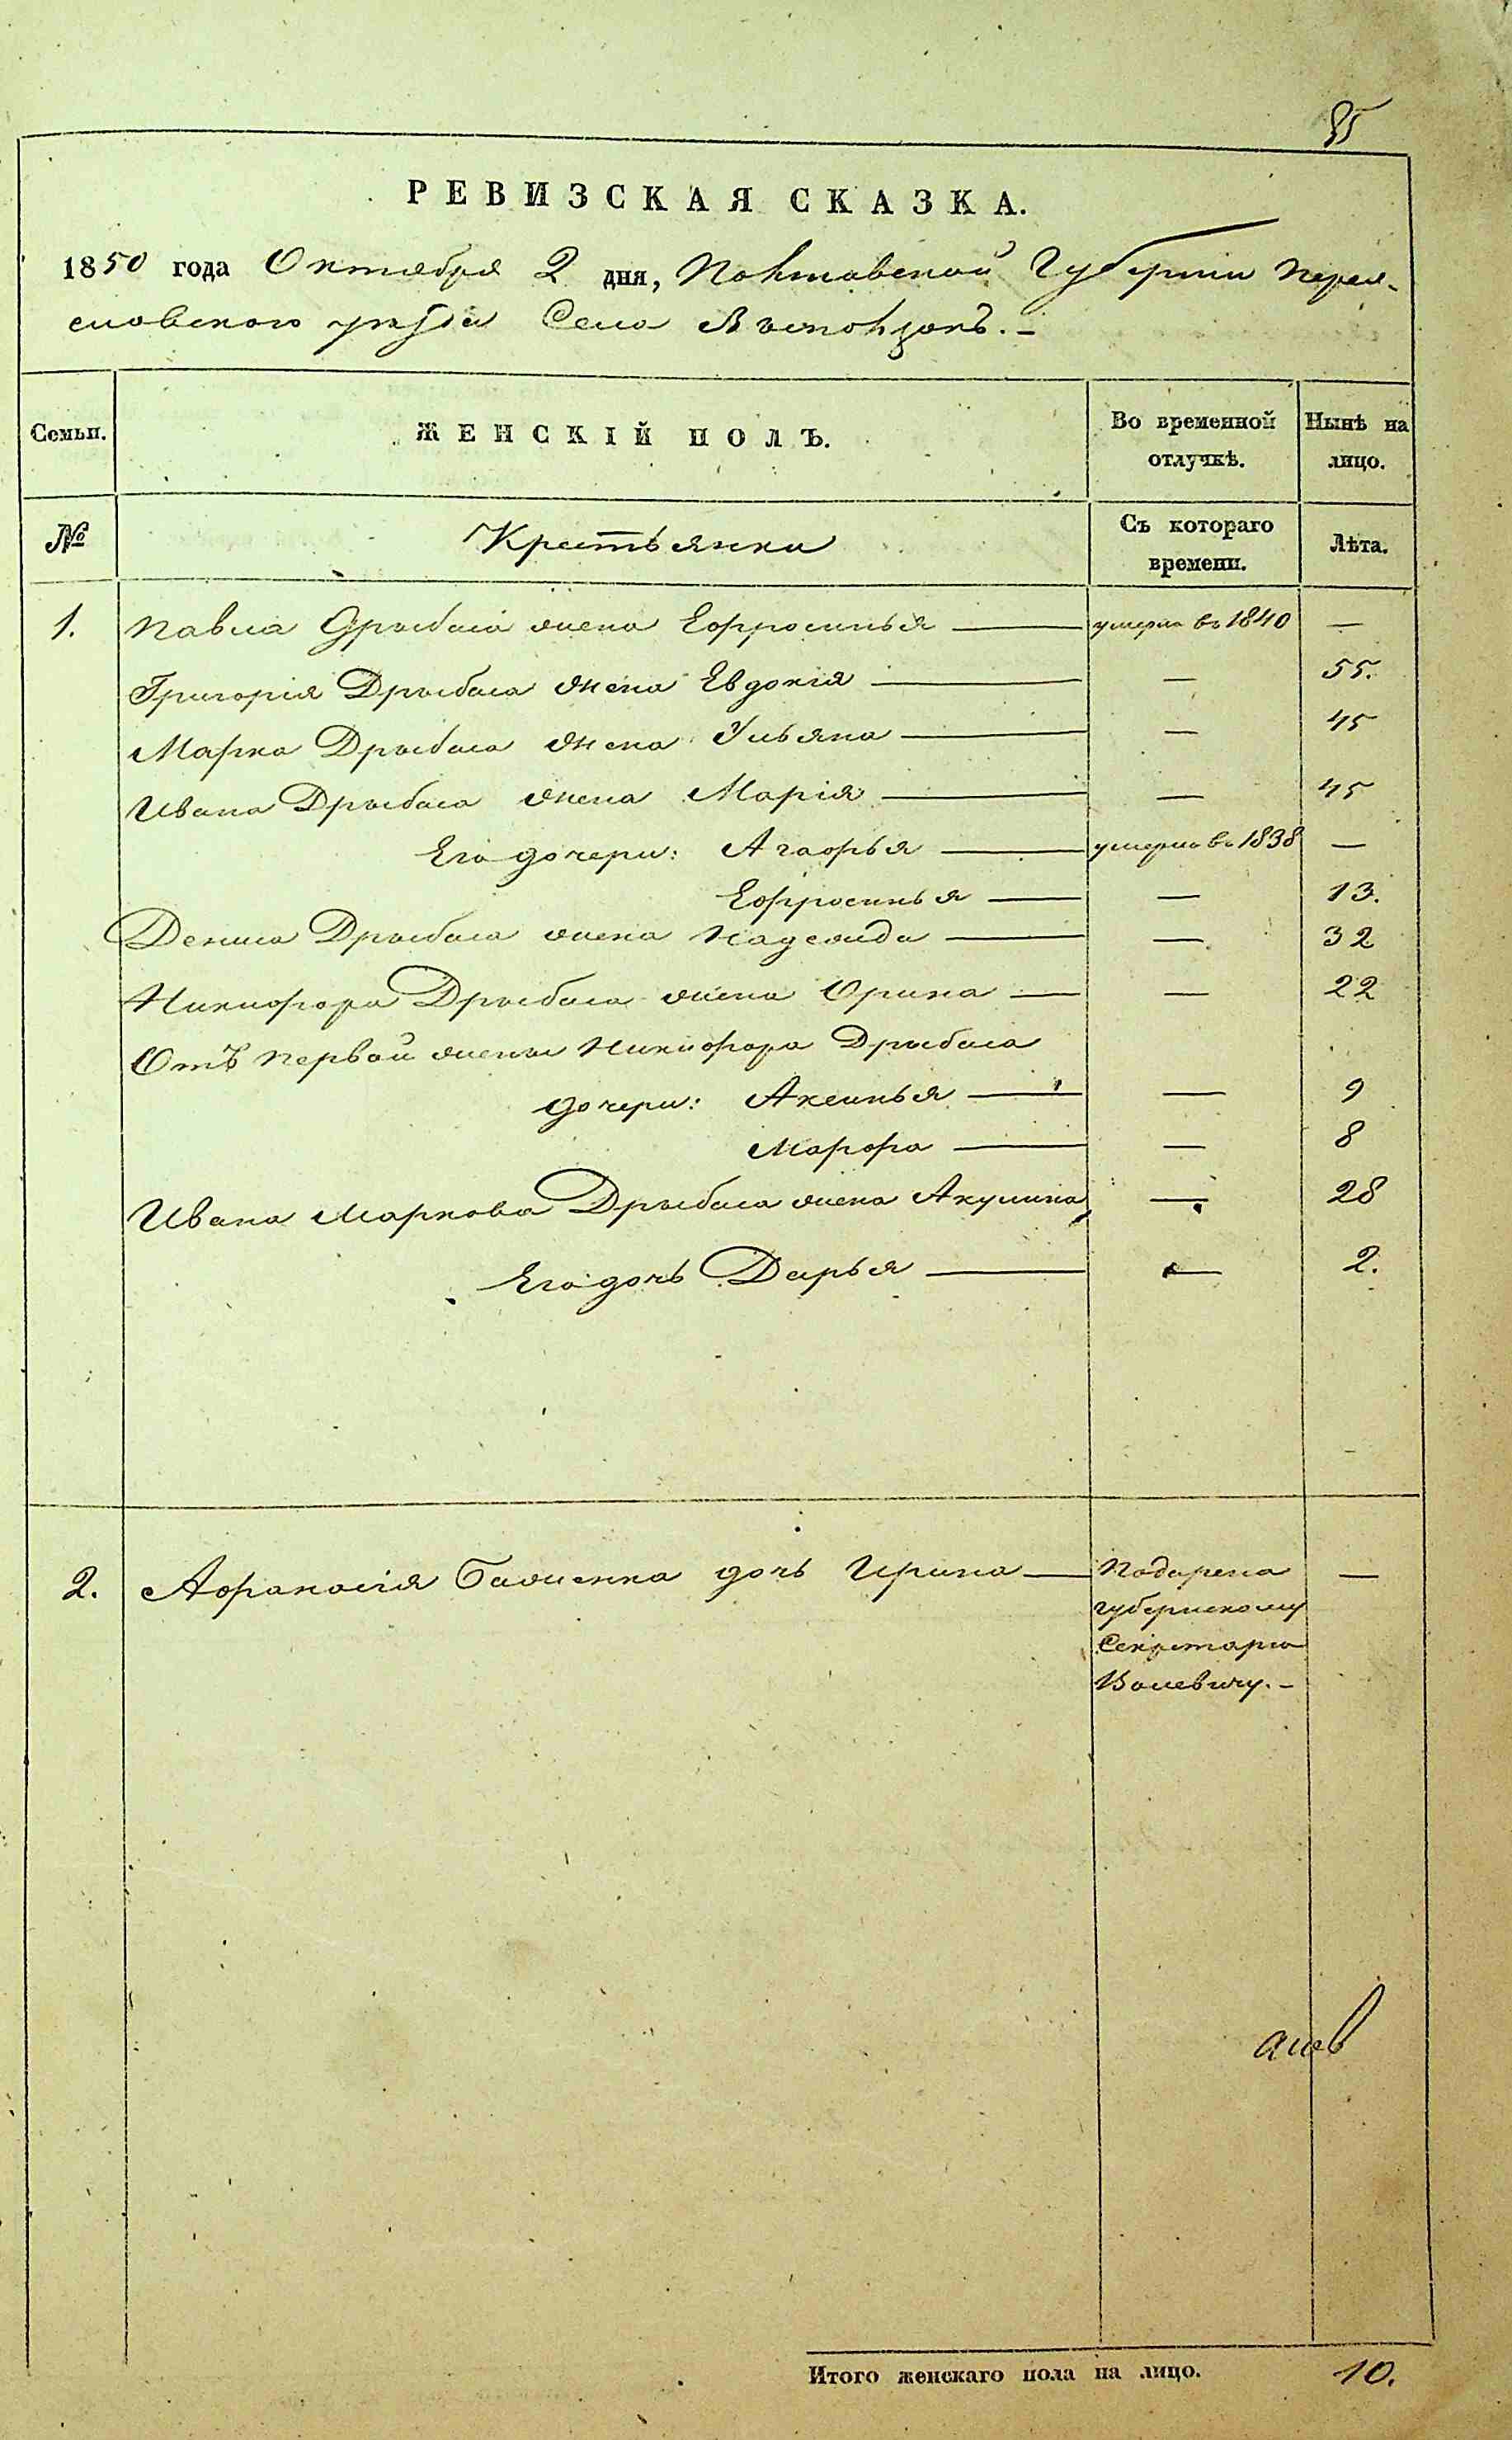 85
РЕВИЗСКАЯ СКАЗКА.
1850 года Октября 2 дня, Полтавской Губернии Перея-
словского уезда Села Выползокъ.-
Семьи. ЖЕНСКІЙ ПОЛЪ. Во временной отлучкѣ. Нынѣ на лицо.
№ Крестьянки Съ котораго времени. Лѣта.
1. Павла Дрыбаса жена Ефросинья — умерла въ 1840 —
Григорія Дрыбаса жена Евдокія — — 55.
Марка Дрыбаса жена Ульяна — — 45
Ивана Дрыбаса жена Марія — — 45
Его дочери: Агафья — умерла въ 1838 —
Ефросинья — — 13.
Дениса Дрыбаса жена Надежда — — 32
Никифора Дрыбаса жена Орина — — 22
Отъ первой жены Никифора Дрыбаса
дочери: Аксинья — — 9
Марфа — — 8
Ивана Маркова Дрыбаса жена Акулина — 28
Его дочь Дарья — — 2.
2. Афанасія Баженка дочь Ирина — Подарена —
губернскому
Секретарю
Итого женскаго пола на лицо. 10.